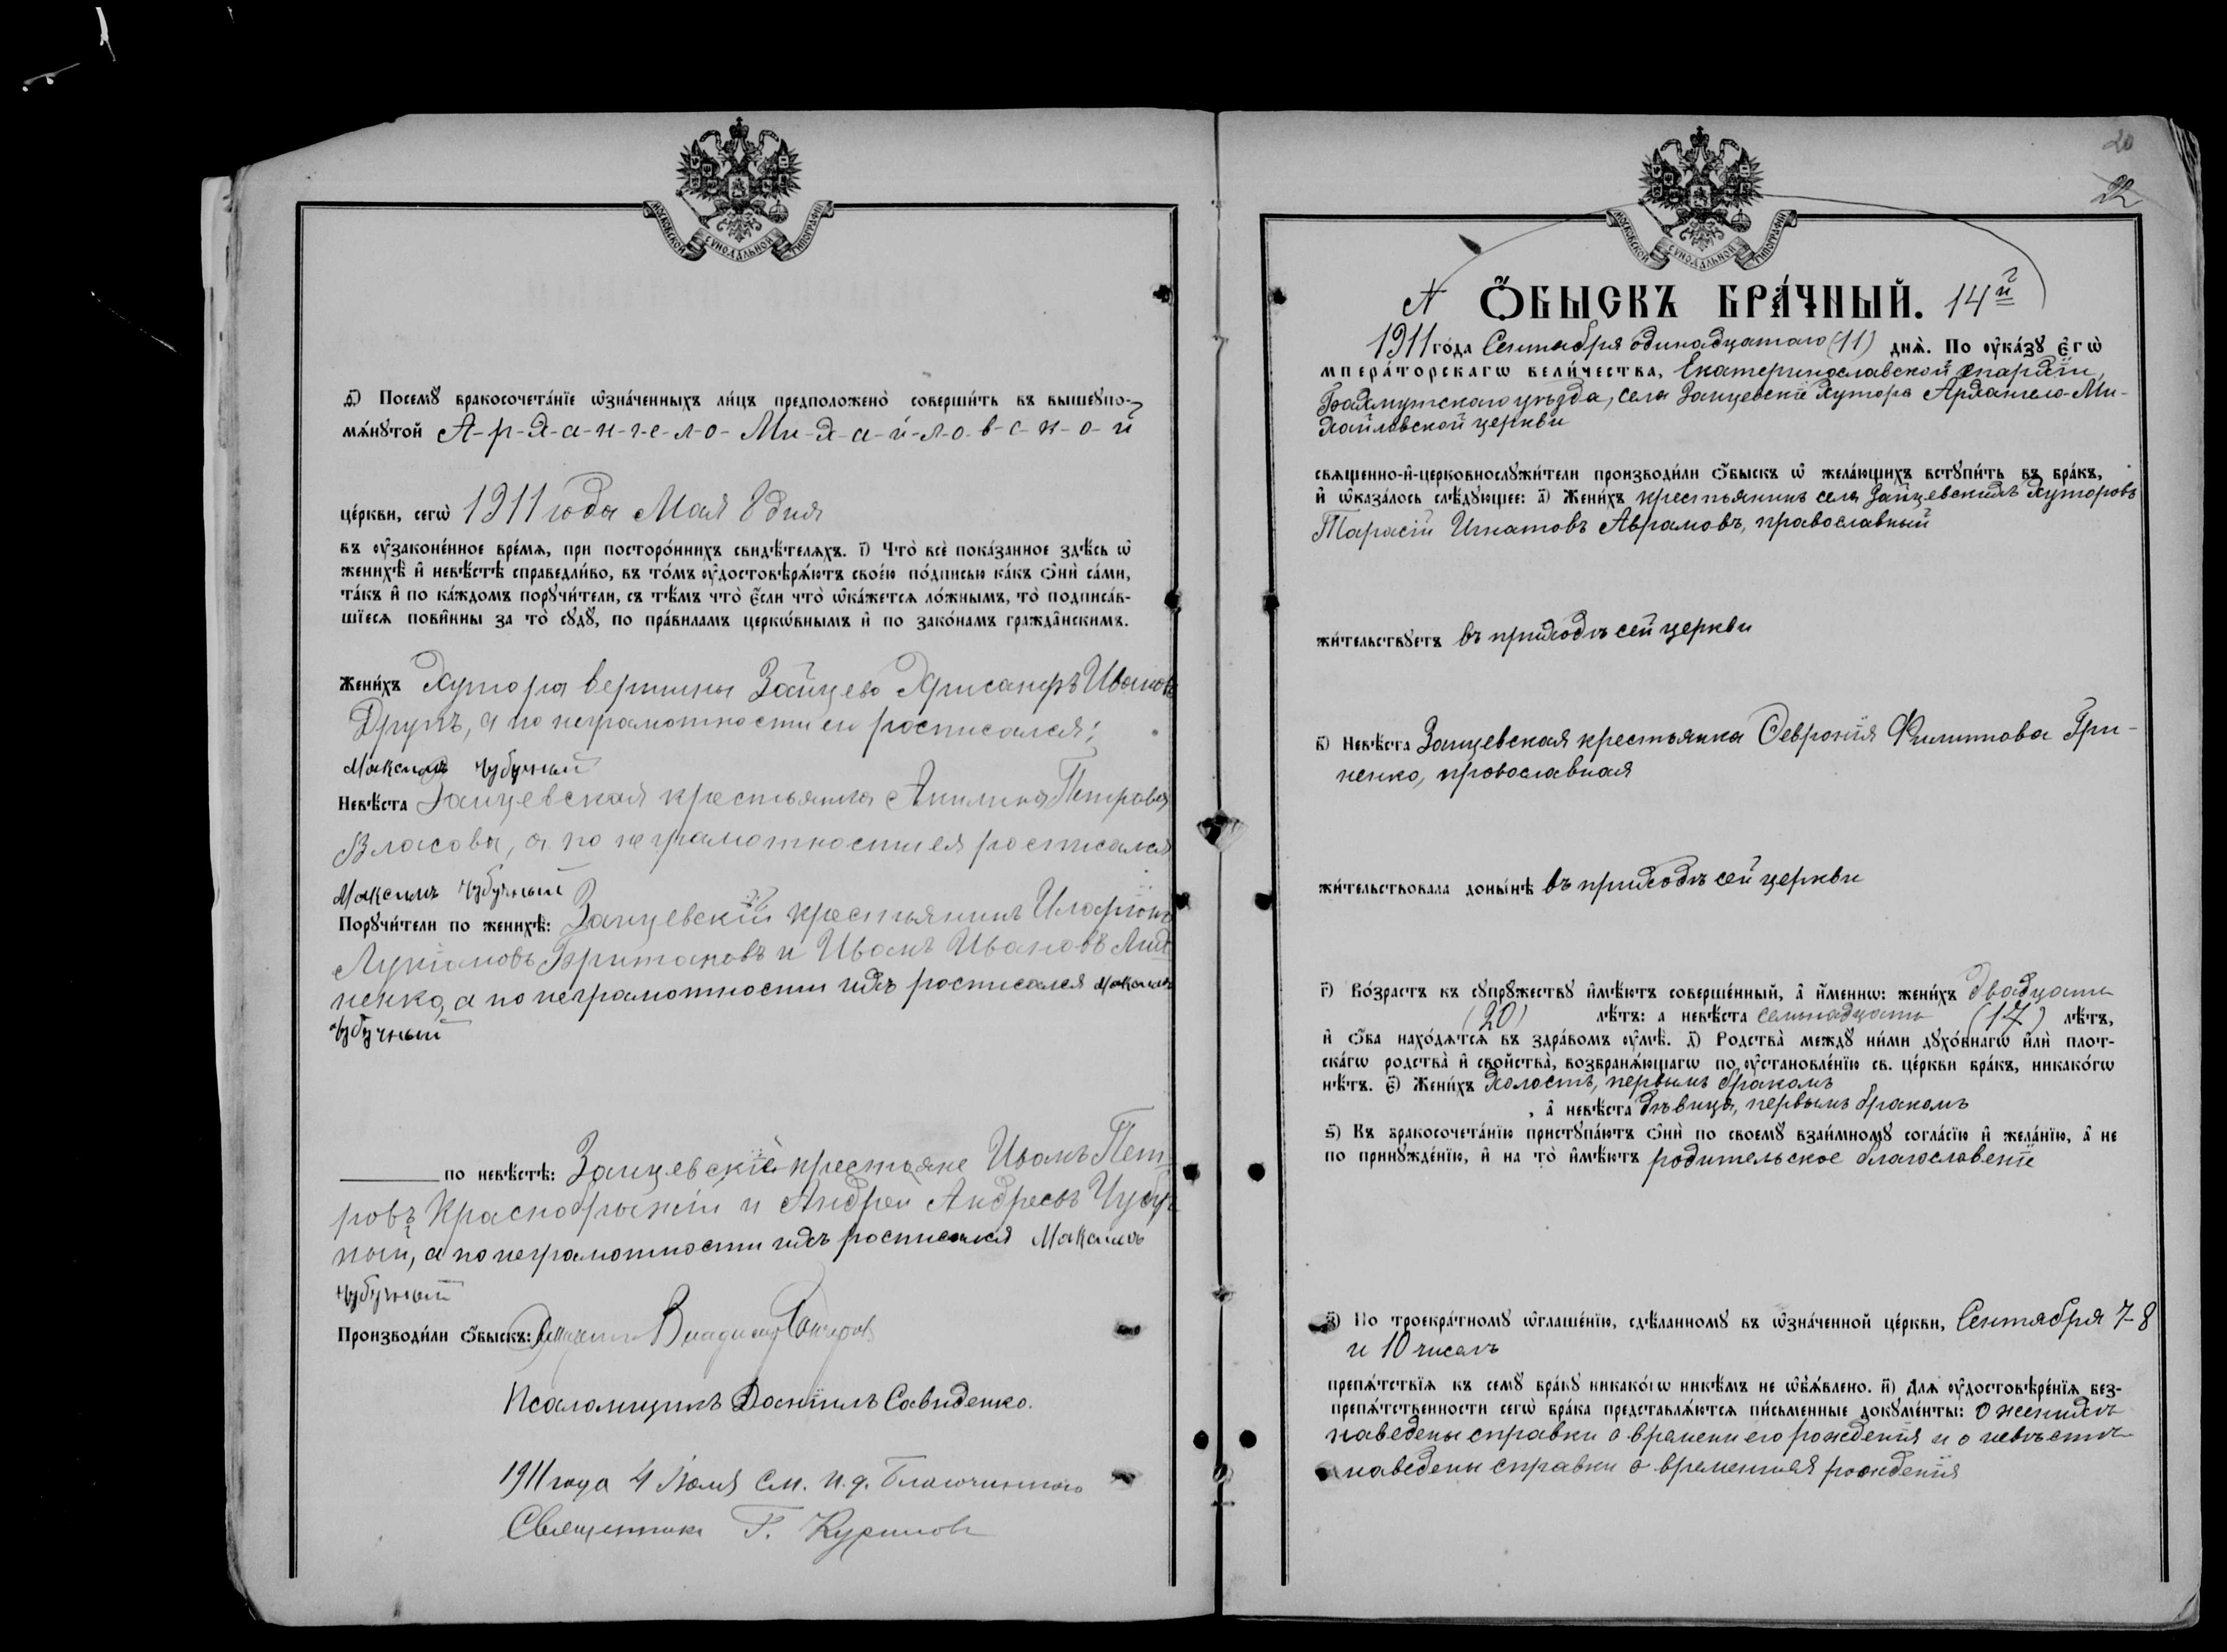 МОСКОВСКОЙ СУНОДАЛЬНОЙ ТИПОГРАФІИ
д҃) Посемꙋ̀ бракосочета́нїе ѡ҆зна́ченныхъ ли́цъ предположено̀ соверши́ть въ вышеꙋпо-
мѧ́нꙋтой А-р-х-а-н-г-е-л-о- Ми-х-а-й-л-о-в-с-к-о-й
це́ркви, сегѡ̀ 1911 года Мая 8 дня
въ ᲂу҆зако́ненное вре́мѧ, при посторо́ннихъ свидѣ́телѧхъ. і҃) Что̀ всѐ пока́занное здѣ́сь ѡ҆
женихѣ̀ и҆ невѣ́стѣ справедли́во, въ то́мъ ᲂу҆достовѣрѧ́ютъ свое́ю по́дписью ка́къ ѻ҆нѝ са́ми,
та́къ и҆ по ка́ждомъ порꙋчи́тели, съ тѣ́мъ что̀ є҆́сли что̀ ѡ҆ка́жетсѧ ло́жнымъ, то̀ подписа́в-
шїесѧ пови́нны за то̀ сꙋдꙋ̀, по пра́виламъ церкѡ́внымъ и҆ по зако́намъ гражда́нскимъ.
Жени́хъ Хутора вершины Зайцево Хрисанфъ Ивановъ
Друпъ, а по неграмотности ей росписался:
Максимъ Чубучный
Невѣ́ста Зайцевская крестьянка Акилина Петрова
Власова, а по неграмотности ея росписался
Максимъ Чубучный
Порꙋчи́тели по женихѣ̀: Зайцевскій крестьянинъ Иларіонъ
Лукіановъ Британовъ и Иванъ Ивановъ Мих
ненко, а по неграмотности ихъ росписался Максимъ
Чубучный
по невѣ́стѣ: Зайцевскіе крестьяне Иванъ Пет-
ровъ Краснобрыжій и Андрей Андреевъ Чубуч
ный, а по неграмотности ихъ росписался Максимъ
Чубучный
Производи́ли ѻ҆́быскъ: Владимір
Псаломщикъ Даніилъ Савиденко.
1911 года 4 Іюля См. и.д. Благочиннаго
Священникъ Г. Куриловъ
20
22
МОСКОВСКОЙ СУНОДАЛЬНОЙ ТИПОГРАФІИ
N Ѻ҆́БЫСКЪ БРА́ЧНЫЙ. 14й
1911 го́да Сентября одинадцатаго (11) днѧ̀. По ᲂу҆ка́зꙋ є҆гѡ̀
мпера́торскагѡ вели́чества, Екатеринославской епархіи,
Бахмутскаго уѣзда, села Зайцевскіе Хутора Архангело-Ми-
хайловской церкви
свѧще́нно-и҆-церковнослꙋжи́тели производи́ли ѻ҆́быскъ ѡ҆ жела́ющихъ встꙋпи́ть въ бра́къ,
и҆ ѡ҆каза́лось слѣ́дꙋющее: а҃) Жени́хъ крестьянинъ села Зайцевскихъ Хуторовъ
Тарасій Игнатовъ Аврамовъ, православный
жи́тельствꙋетъ въ приходѣ сей церкви
в҃) Невѣ́ста Зайцевская крестьянка Февронія Филиппова Гри-
ненко, провославная
жи́тельствовала доны́нѣ въ приходѣ сей церкви
г҃) Во́зрастъ къ сꙋпрꙋ́жествꙋ и҆мѣ́ютъ соверше́нный, а҆ и҆́меннѡ: жени́хъ двадцать
(20) лѣ́тъ: а невѣ́ста семьнадцать (17) лѣ́тъ,
и҆ ѻ҆́ба нахо́дѧтсѧ въ здра́вомъ ᲂу҆мѣ̀. д҃) Родства̀ междꙋ̀ ни́ми дꙋхо́внагѡ и҆лѝ плот-
ска́гѡ родства̀ и҆ сво́йства̀, возбранѧ́ющагѡ по ᲂу҆становле́нїю св. це́ркви бра́къ, никако́гѡ
нѣ́тъ. є҃) Жени́хъ холостъ, первымъ бракомъ
, а҆ невѣ́ста дѣвица, первымъ бракомъ
ѕ҃) Къ бракосочета́нїю пристꙋпа́ютъ ѻ҆нѝ по своемꙋ̀ взаи́мномꙋ согла́сїю и҆ жела́нїю, а҆ не
по принꙋжде́нїю, и҆ на то̀ и҆мѣ́ютъ родительское благословеніе
з҃) По троекра́тномꙋ ѡ҆глаше́нїю, сдѣ́ланномꙋ въ ѡ҆зна́ченной це́ркви, Сентября 7-8
и 10 числъ
препѧ́тствїѧ къ семꙋ̀ бра́кꙋ никако́гѡ никѣ́мъ не ѡ҆б̾ѧ́влено. и҃) Длѧ ᲂу҆достовѣре́нїѧ без-
препѧ́тственности сегѡ̀ бра́ка представлѧ́ютсѧ пи́сьменные докꙋме́нты: о женихѣ
наведены справки о времени его рожденія и о невѣстѣ
наведены справки о времени ея рожденія